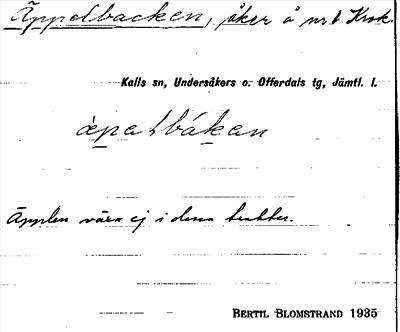 Äppelbacken, åker å nr 1 Krok
Kalls sn, Undersåkers o. Offerdals tg, Jämtl. l.
àpalbákan
Äpplen växa ej i dessa trakter.
BERTIL BLOMSTRAND 1935